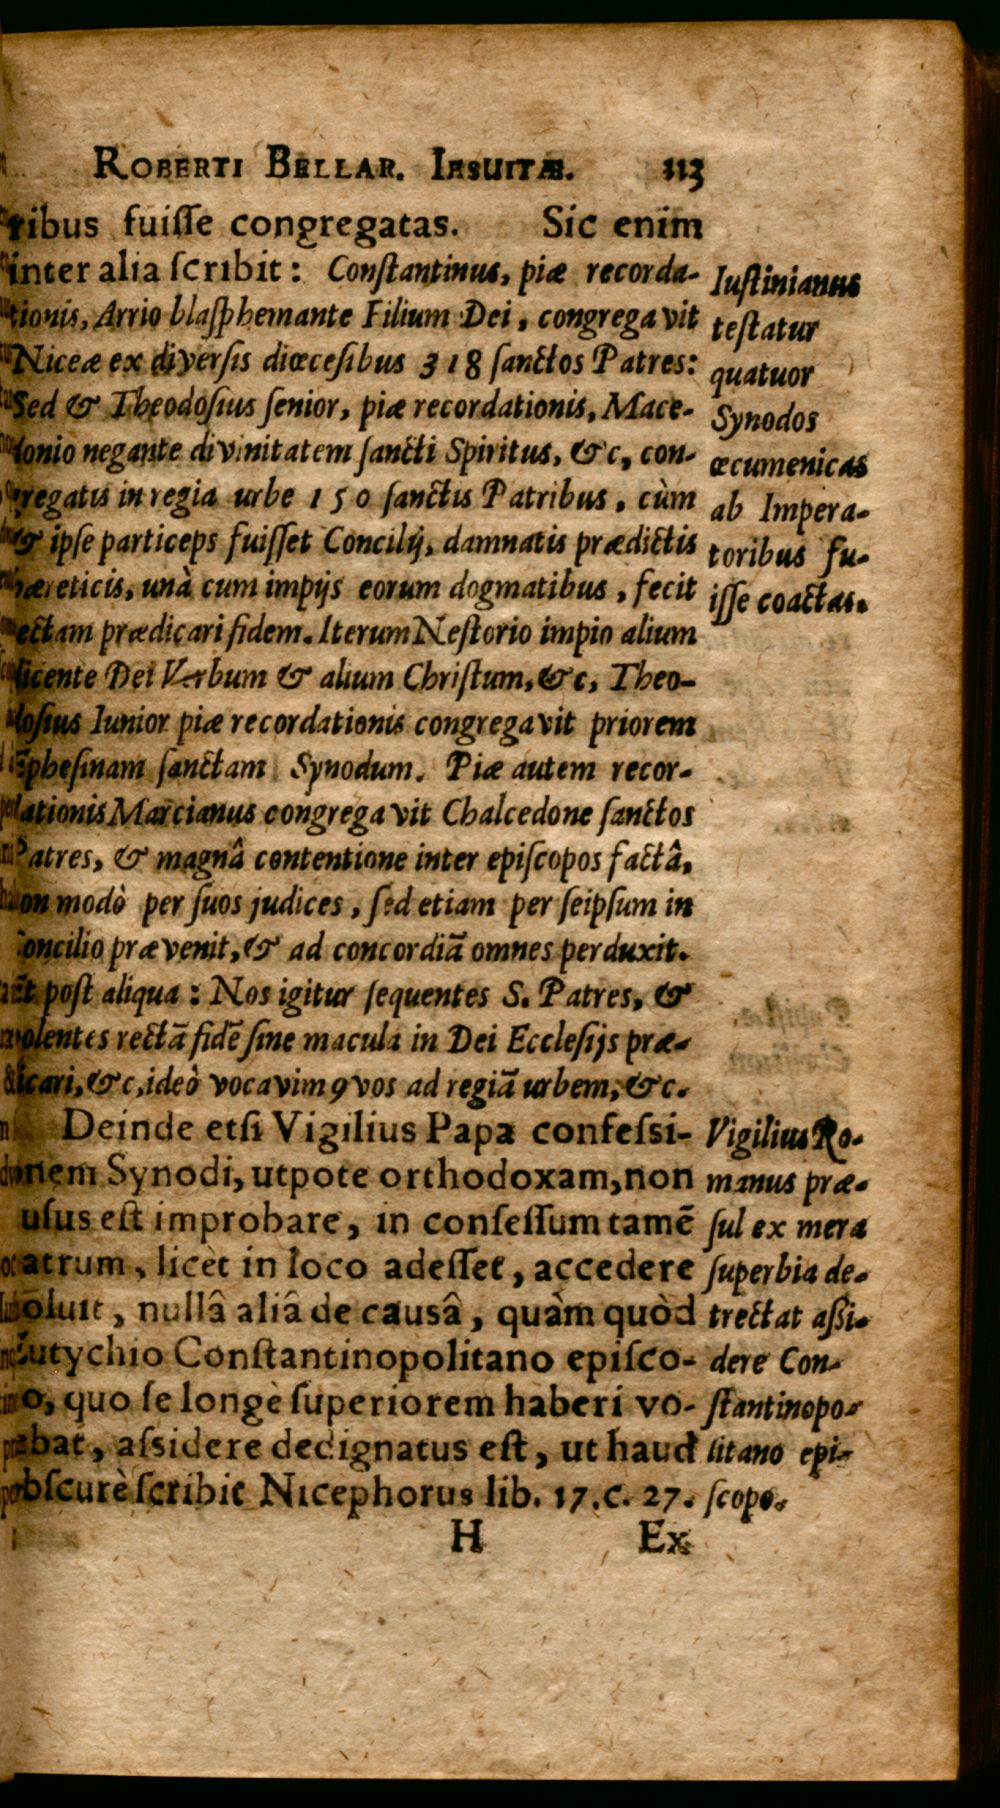 ROBERTI BELLAR. IESUITÆ. 113
tribus fuiſſe congregatas. Sic enim
inter alia ſcribit: Conſtantinus, piæ recorda-
tionis, Arrio blaſphemante Filium Dei, congregavit
Niceæ ex diverſis diœceſibus 318 ſanctos Patres:
Sed & Theodoſius ſenior, piæ recordationis, Mace-
donio negante divinitatem ſancti Spiritus, &c, con-
gregatis in regia urbe 150 ſanctis Patribus, cùm
& ipſe particeps fuiſſet Concilij, damnatis prædictis
hæreticis, unà cum impijs eorum dogmatibus, fecit
rectam prædicari fidem. Iterum Neſtorio impio alium
dicente Dei Verbum & alium Chriſtum, &c, Theo-
doſius Iunior piæ recordationis congregavit priorem
Epheſinam ſanctam Synodum. Piæ autem recor-
dationis Marcianus congregavit Chalcedone ſanctos
Patres, & magnâ contentione inter epiſcopos factâ,
non modò per ſuos judices, ſed etiam per ſeipſum in
Concilio prævenit, & ad concordiã omnes perduxit.
Et poſt aliqua: Nos igitur ſequentes S. Patres, &
volentes rectã fidẽ ſine macula in Dei Eccleſijs præ-
dicari, &c, ideò vocavimꝰ vos ad regiã urbem, &c.
Deinde etſi Vigilius Papa confeſsi-
onem Synodi, utpote orthodoxam, non
uſus eſt improbare, in conſeſſum tamẽ
Patrum, licèt in loco adeſſet, accedere
noluit, nullâ aliâ de causâ, quàm quòd
Eutychio Conſtantinopolitano epiſco-
po, quo ſe longè ſuperiorem haberi vo-
lebat, aſsidere dedignatus eſt, ut haud
obſcurè ſcribit Nicephorus lib. 17. c. 27.
H Ex
Iuſtinianus
teſtatur
quatuor
Synodos
œcumenicas
ab Impera-
toribus fu-
iſſe coactas.
Vigilius Ro-
manus præ-
ſul ex mera
ſuperbia de-
trectat aſſi-
dere Con-
ſtantinopo-
litano epi-
ſcopo.